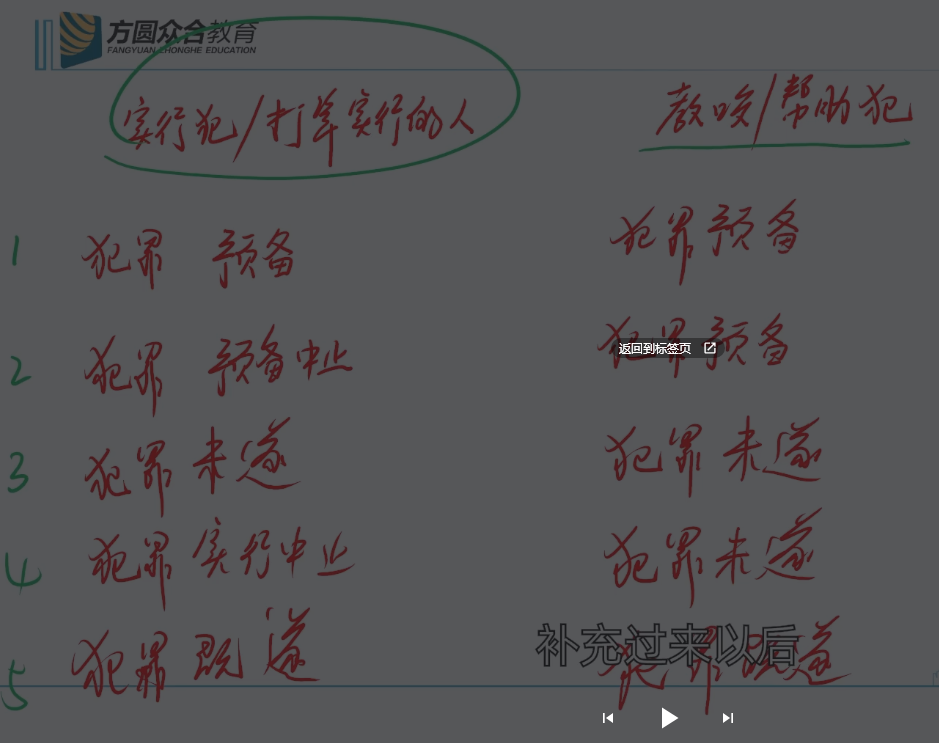 方圆众合教育
FANGYUAN ZHONGHE EDUCATION
实行犯/打算实行的人 教唆/帮助犯
1 犯罪 预备 犯罪预备
2 犯罪 预备中止 犯罪预备
返回到标签页
3 犯罪未遂 犯罪未遂
4 犯罪实行中止 犯罪未遂
5 犯罪既遂 犯罪既遂
补充过来以后